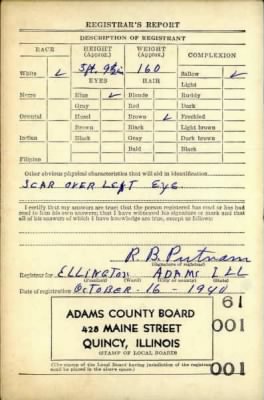 REGISTRAR'S REPORT
DESCRIPTION OF REGISTRANT
RACE HEIGHT (Approx.) WEIGHT (Approx.) COMPLEXION
White ✓ 5ft. 9½in 160 Sallow ✓
EYES HAIR Light
Negro Blue ✓ Blonde Ruddy
Gray Red Dark
Oriental Hazel Brown ✓ Freckled
Brown Black Light brown
Indian Black Gray Dark brown
Bald Black
Filipino
Other obvious physical characteristics that will aid in identification
SCAR OVER LEFT EYE
I certify that my answers are true; that the person registered has read or has had
read to him his own answers; that I have witnessed his signature or mark and that
all of his answers of which I have knowledge are true, except as follows:
R. B. Putnam
(Signature of registrar)
Registrar for ELLINGTON ADAMS ILL
(State)
Date of registration OCTOBER - 16 - 1940
61
ADAMS COUNTY BOARD
001
428 MAINE STREET
QUINCY, ILLINOIS
(STAMP OF LOCAL BOARD)
001
(The stamp of the Local Board having jurisdiction of the registrant
shall be placed in the above space.)